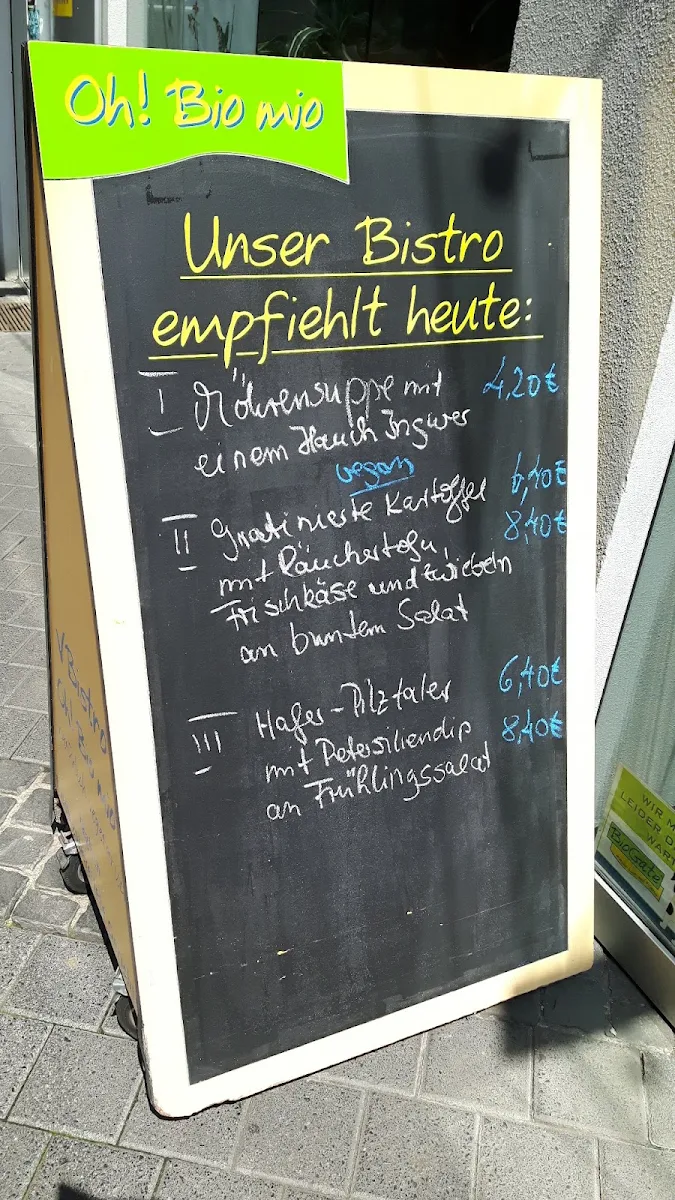 Oh! Bio mio
Unser Bistro
empfiehlt heute:
I Möhrensuppe mit 4,20€
einem Hauch Ingwer
vegan
II Gratinierte Kartoffel 6,40€
mit Räuchertofu, 8,40€
Frischkäse und Zwiebeln
an buntem Salat
III Hafer-Pilztaler 6,40€
mit Petersiliendip 8,40€
an Frühlingssalat
Bistro
Oh!
WIR M
LEIDER D
WART
BioGate